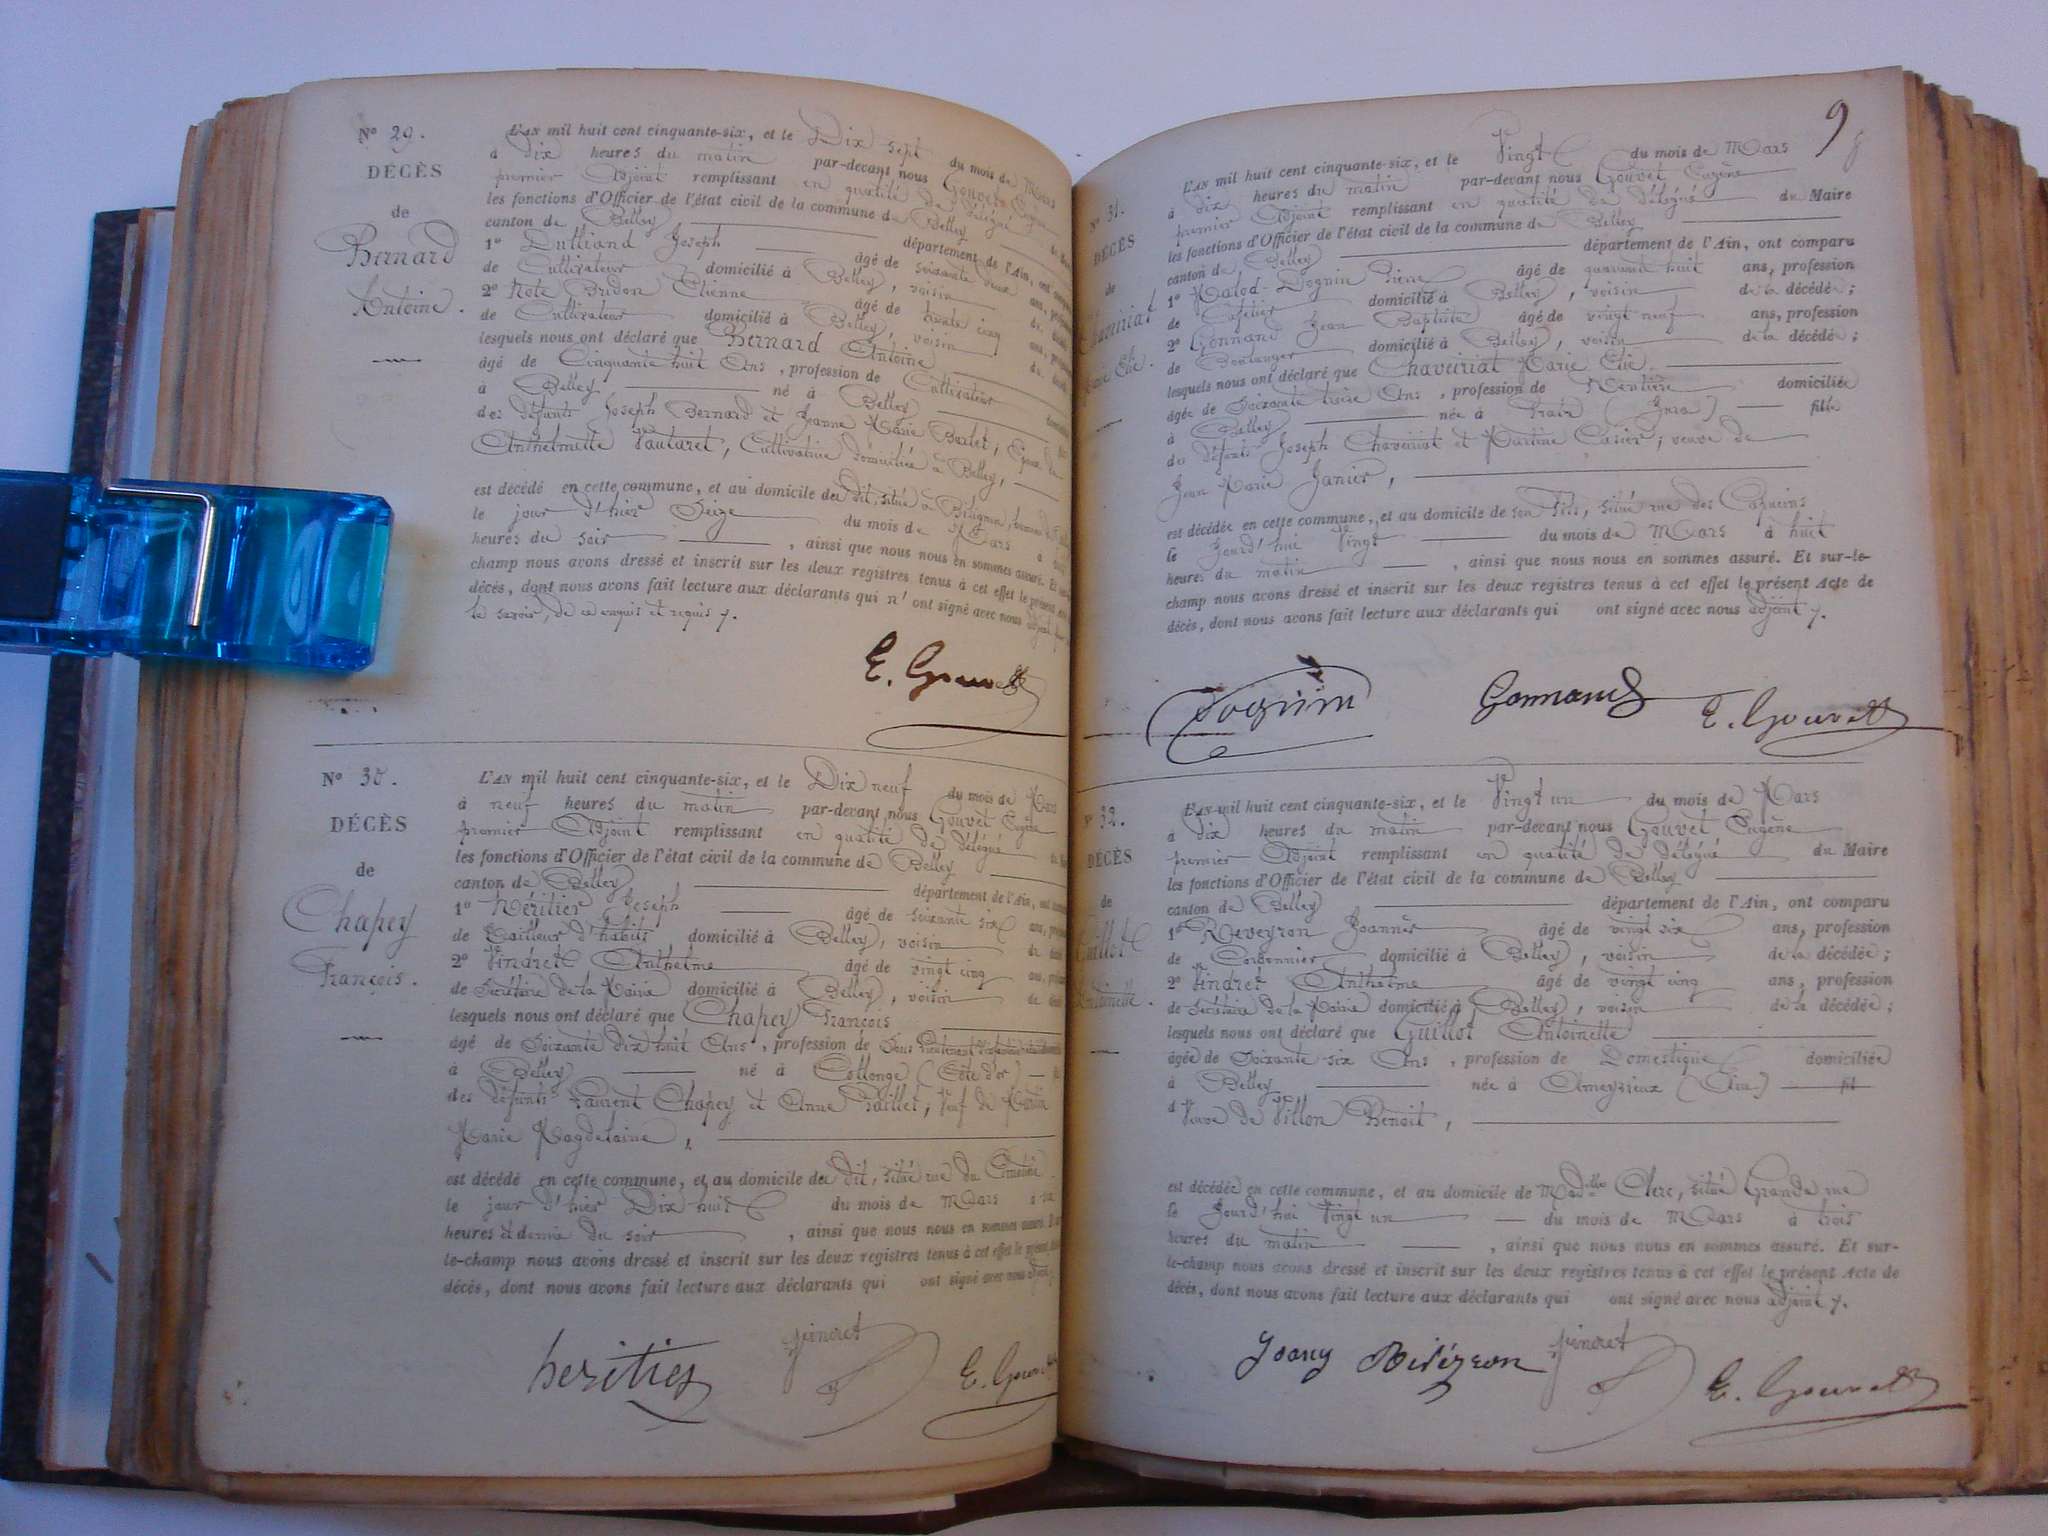 N° 29.
DÉCÈS
de
Bernard
Antoine.
L'AN mil huit cent cinquante-six, et le Dix sept du mois de Mars
à dix heures du matin par-devant nous Gouvet Eugène
premier Adjoint remplissant en qualité de délégué
les fonctions d'Officier de l'état civil de la commune de Belley
canton de Belley, département de l'Ain, ont
1° Dulliand Joseph âgé de soixante deux ans,
de Cultivateur domicilié à Belley, voisin
2° Note Bridon Etienne âgé de trente cinq ans,
de Cultivateur domicilié à Belley, voisin
lesquels nous ont déclaré que Bernard Antoine
âgé de Cinquante huit Ans, profession de Cultivateur
à Belley né à Belley
des défunts Joseph Bernard et Jeanne Marie Burlet, Epoux de
Anthelmette Vautaret, Cultivatrice domiciliée à Belley,
est décédé en cette commune, et au domicile du dit, situé à Bitignin,
le jour d'hier Seize du mois de Mars à
heures du soir, ainsi que nous nous en sommes assuré. Et
champ nous avons dressé et inscrit sur les deux registres tenus à cet effet le présent
décès, dont nous avons fait lecture aux déclarants qui n'ont signé avec nous adjoint
le savoir, de ce enquis et requis
E. Gouvet
N° 30.
DÉCÈS
de
Chapey
François.
L'AN mil huit cent cinquante-six, et le Dix neuf du mois de Mars
à neuf heures du matin par-devant nous Gouvet Eugène
premier Adjoint remplissant en qualité de délégué
les fonctions d'Officier de l'état civil de la commune de Belley
canton de Belley département de l'Ain, ont
1° Héritier Joseph âgé de soixante six ans,
de Tailleur d'habits domicilié à Belley, voisin
2° Vindret Anthelme âgé de vingt cinq ans,
de Secrétaire de la Mairie domicilié à Belley, voisin
lesquels nous ont déclaré que Chapey François
âgé de Soixante dix huit Ans, profession de Sous lieutenant
à Belley né à Collonge (Côte d'or)
des défunts Laurent Chapey et Anne Paillet, Veuf de Martin
Marie Magdelaine,
est décédé en cette commune, et au domicile du dit, situé rue du Cimetière
le jour d'hier Dix huit du mois de Mars à
heures et demie du soir, ainsi que nous nous en sommes assuré.
le-champ nous avons dressé et inscrit sur les deux registres tenus à cet effet le présent
décès, dont nous avons fait lecture aux déclarants qui ont signé avec nous adjoint
heritier Vindret E. Gouvet
9
N° 31.
DÉCÈS
de
Chaveiriat
Marie Elie.
L'AN mil huit cent cinquante-six, et le Vingt du mois de Mars
à dix heures du matin par-devant nous Gouvet Eugène
premier Adjoint remplissant en qualité de délégué du Maire
les fonctions d'Officier de l'état civil de la commune de Belley
canton de Belley département de l'Ain, ont comparu
1° Malod-Dognin Pierre âgé de quarante huit ans, profession
de Cafetier domicilié à Belley, voisin de la décédée;
2° Gonnand Jean Baptiste âgé de vingt neuf ans, profession
de Boulanger domicilié à Belley, voisin de la décédée;
lesquels nous ont déclaré que Chaveiriat Marie Elie.
âgée de Soixante treize Ans, profession de Rentière domiciliée
à Belley née à (Jura) fille
des défunts Joseph Chaveiriat et Martine Casier, veuve de
Jean Marie Janier,
est décédée en cette commune, et au domicile de son fils, situé rue des Capucins
le Jourd'hui Vingt du mois de Mars à huit
heures du matin, ainsi que nous nous en sommes assuré. Et sur-le-
champ nous avons dressé et inscrit sur les deux registres tenus à cet effet le présent Acte de
décès, dont nous avons fait lecture aux déclarants qui ont signé avec nous adjoint
Dognin Gonnand E. Gouvet
N° 32.
DÉCÈS
de
Guillot
Antoinette.
L'AN mil huit cent cinquante-six, et le Vingt un du mois de Mars
à dix heures du matin par-devant nous Gouvet Eugène
premier Adjoint remplissant en qualité de délégué du Maire
les fonctions d'Officier de l'état civil de la commune de Belley
canton de Belley département de l'Ain, ont comparu
1° Reveyron Joannès âgé de vingt six ans, profession
de Cordonnier domicilié à Belley, voisin de la décédée;
2° Vindret Anthelme âgé de vingt cinq ans, profession
de Secrétaire de la Mairie domicilié à Belley, voisin de la décédée;
lesquels nous ont déclaré que Guillot Antoinette
âgée de Soixante six Ans, profession de Domestique domiciliée
à Belley née à Ameyzieux (Ain) fil
d Veuve de Villon Benoit,
est décédée en cette commune, et au domicile de Madelle Clerc, situé Grande rue
le Jourd'hui Vingt un du mois de Mars à trois
heures du matin, ainsi que nous nous en sommes assuré. Et sur-
le-champ nous avons dressé et inscrit sur les deux registres tenus à cet effet le présent Acte de
décès, dont nous avons fait lecture aux déclarants qui ont signé avec nous adjoint
Joany Revézron Vindret E. Gouvet